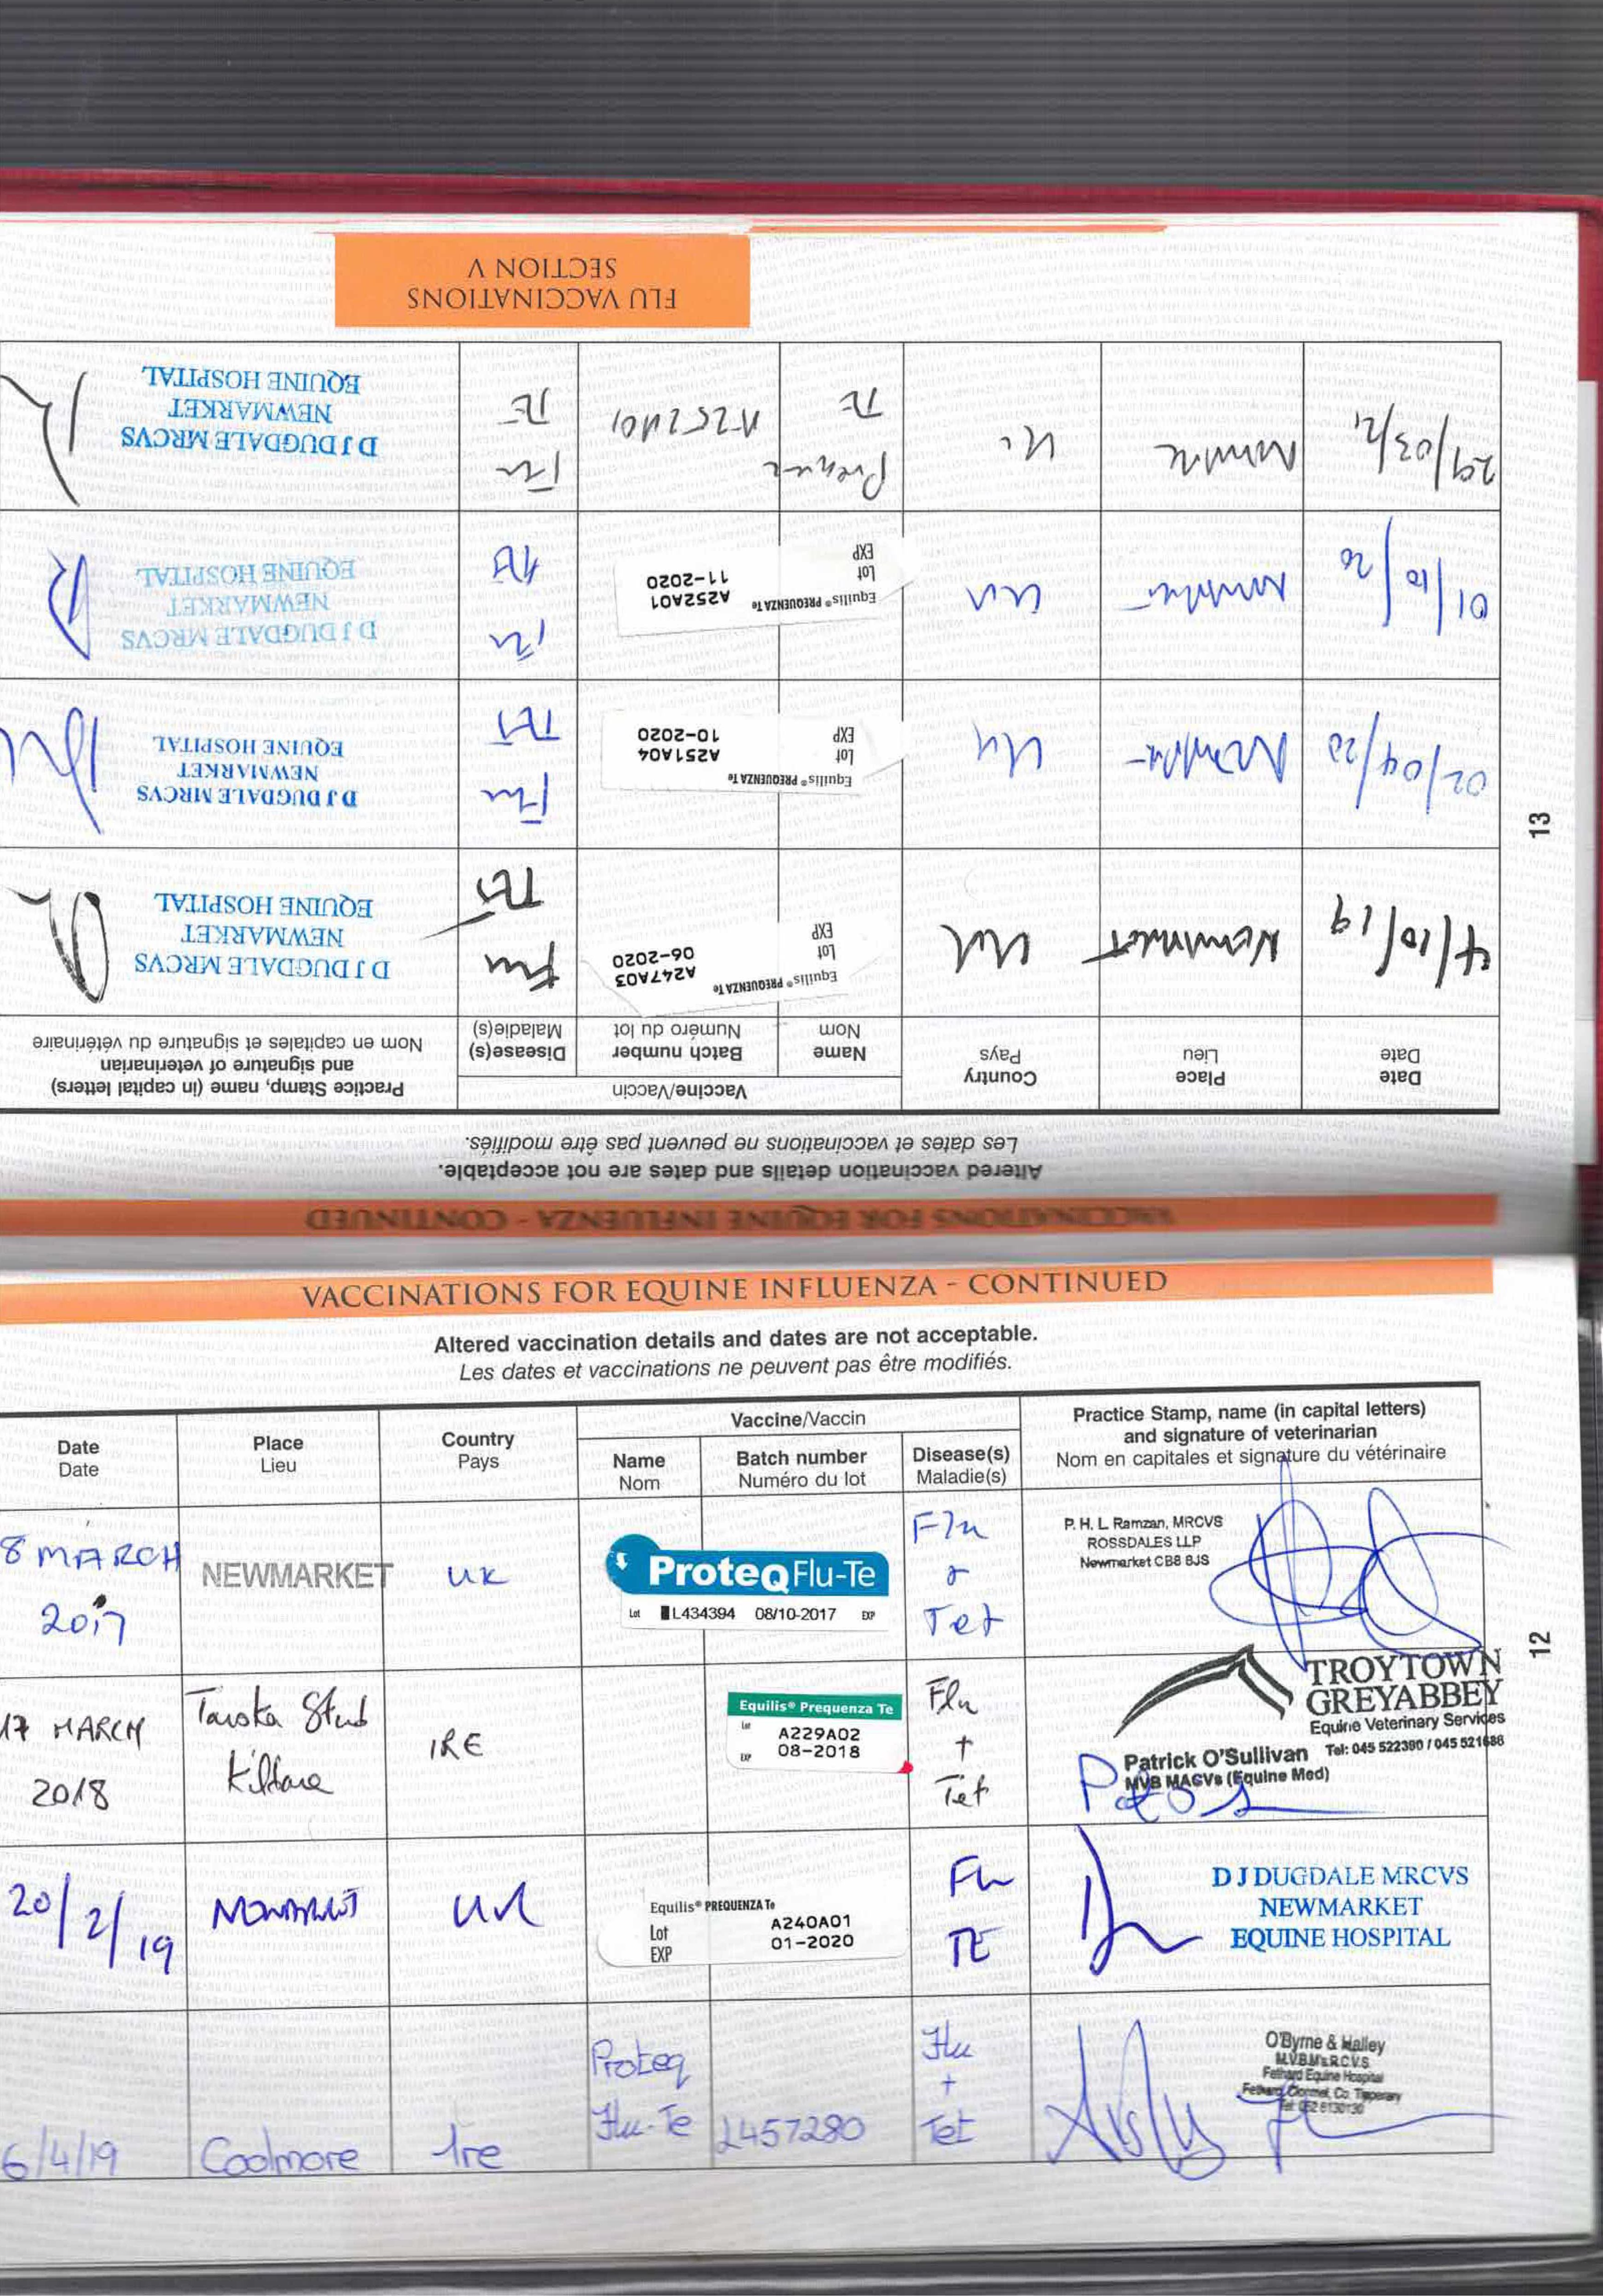 VACCINATIONS FOR EQUINE INFLUENZA - CONTINUED
Altered vaccination details and dates are not acceptable.
Les dates et vaccinations ne peuvent pas être modifiés.
Date
Date
Place
Lieu
Country
Pays
Vaccine/Vaccin
Name
Nom
Batch number
Numéro du lot
Disease(s)
Maladie(s)
Practice Stamp, name (in capital letters)
and signature of veterinarian
Nom en capitales et signature du vétérinaire
8 MARCH
2017
NEWMARKET
UK
ProteqFlu-Te
Lot L434394 08/10-2017 EXP
Flu
&
Tet
P. H. L Ramzan, MRCVS
ROSSDALES LLP
Newmarket CB8 8JS
17 MARCH
2018
Stud
Kildare
IRE
Equilis® Prequenza Te
Lot A229A02
EXP 08-2018
Flu
+
Tet
TROYTOWN
GREYABBEY
Equine Veterinary Services
Patrick O'Sullivan Tel: 045 522390 / 045 521686
MVB MACVs (Equine Med)
20/2/19
UK
Equilis® PREQUENZA Te
Lot A240A01
EXP 01-2020
Flu
TE
D J DUGDALE MRCVS
NEWMARKET
EQUINE HOSPITAL
6/4/19
Coolmore
Ire
Proteq
Flu-Te
L457280
Flu
+
Tet
O'Byrne & Halley
M.V.B.M.R.C.V.S.
Fethard Equine Hospital
Fethard, Clonmel, Co. Tipperary
Tel: 052 6130130
12
VACCINATIONS FOR EQUINE INFLUENZA - CONTINUED
Altered vaccination details and dates are not acceptable.
Les dates et vaccinations ne peuvent pas être modifiés.
Date
Date
Place
Lieu
Country
Pays
Vaccine/Vaccin
Name
Nom
Batch number
Numéro du lot
Disease(s)
Maladie(s)
Practice Stamp, name (in capital letters)
and signature of veterinarian
Nom en capitales et signature du vétérinaire
4/10/19
Newmarket
UK
Equilis® PREQUENZA Te
Lot A247A03
EXP 06-2020
Flu
Tet
D J DUGDALE MRCVS
NEWMARKET
EQUINE HOSPITAL
02/04/20
UK
Equilis® PREQUENZA Te
Lot A251A04
EXP 10-2020
Flu
Tet
D J DUGDALE MRCVS
NEWMARKET
EQUINE HOSPITAL
01/10/20
UK
Equilis® PREQUENZA Te
Lot A252A01
EXP 11-2020
Flu
D J DUGDALE MRCVS
NEWMARKET
EQUINE HOSPITAL
29/03/21
TE
A252A01
Flu
TE
D J DUGDALE MRCVS
NEWMARKET
EQUINE HOSPITAL
13
FLU VACCINATIONS
SECTION V